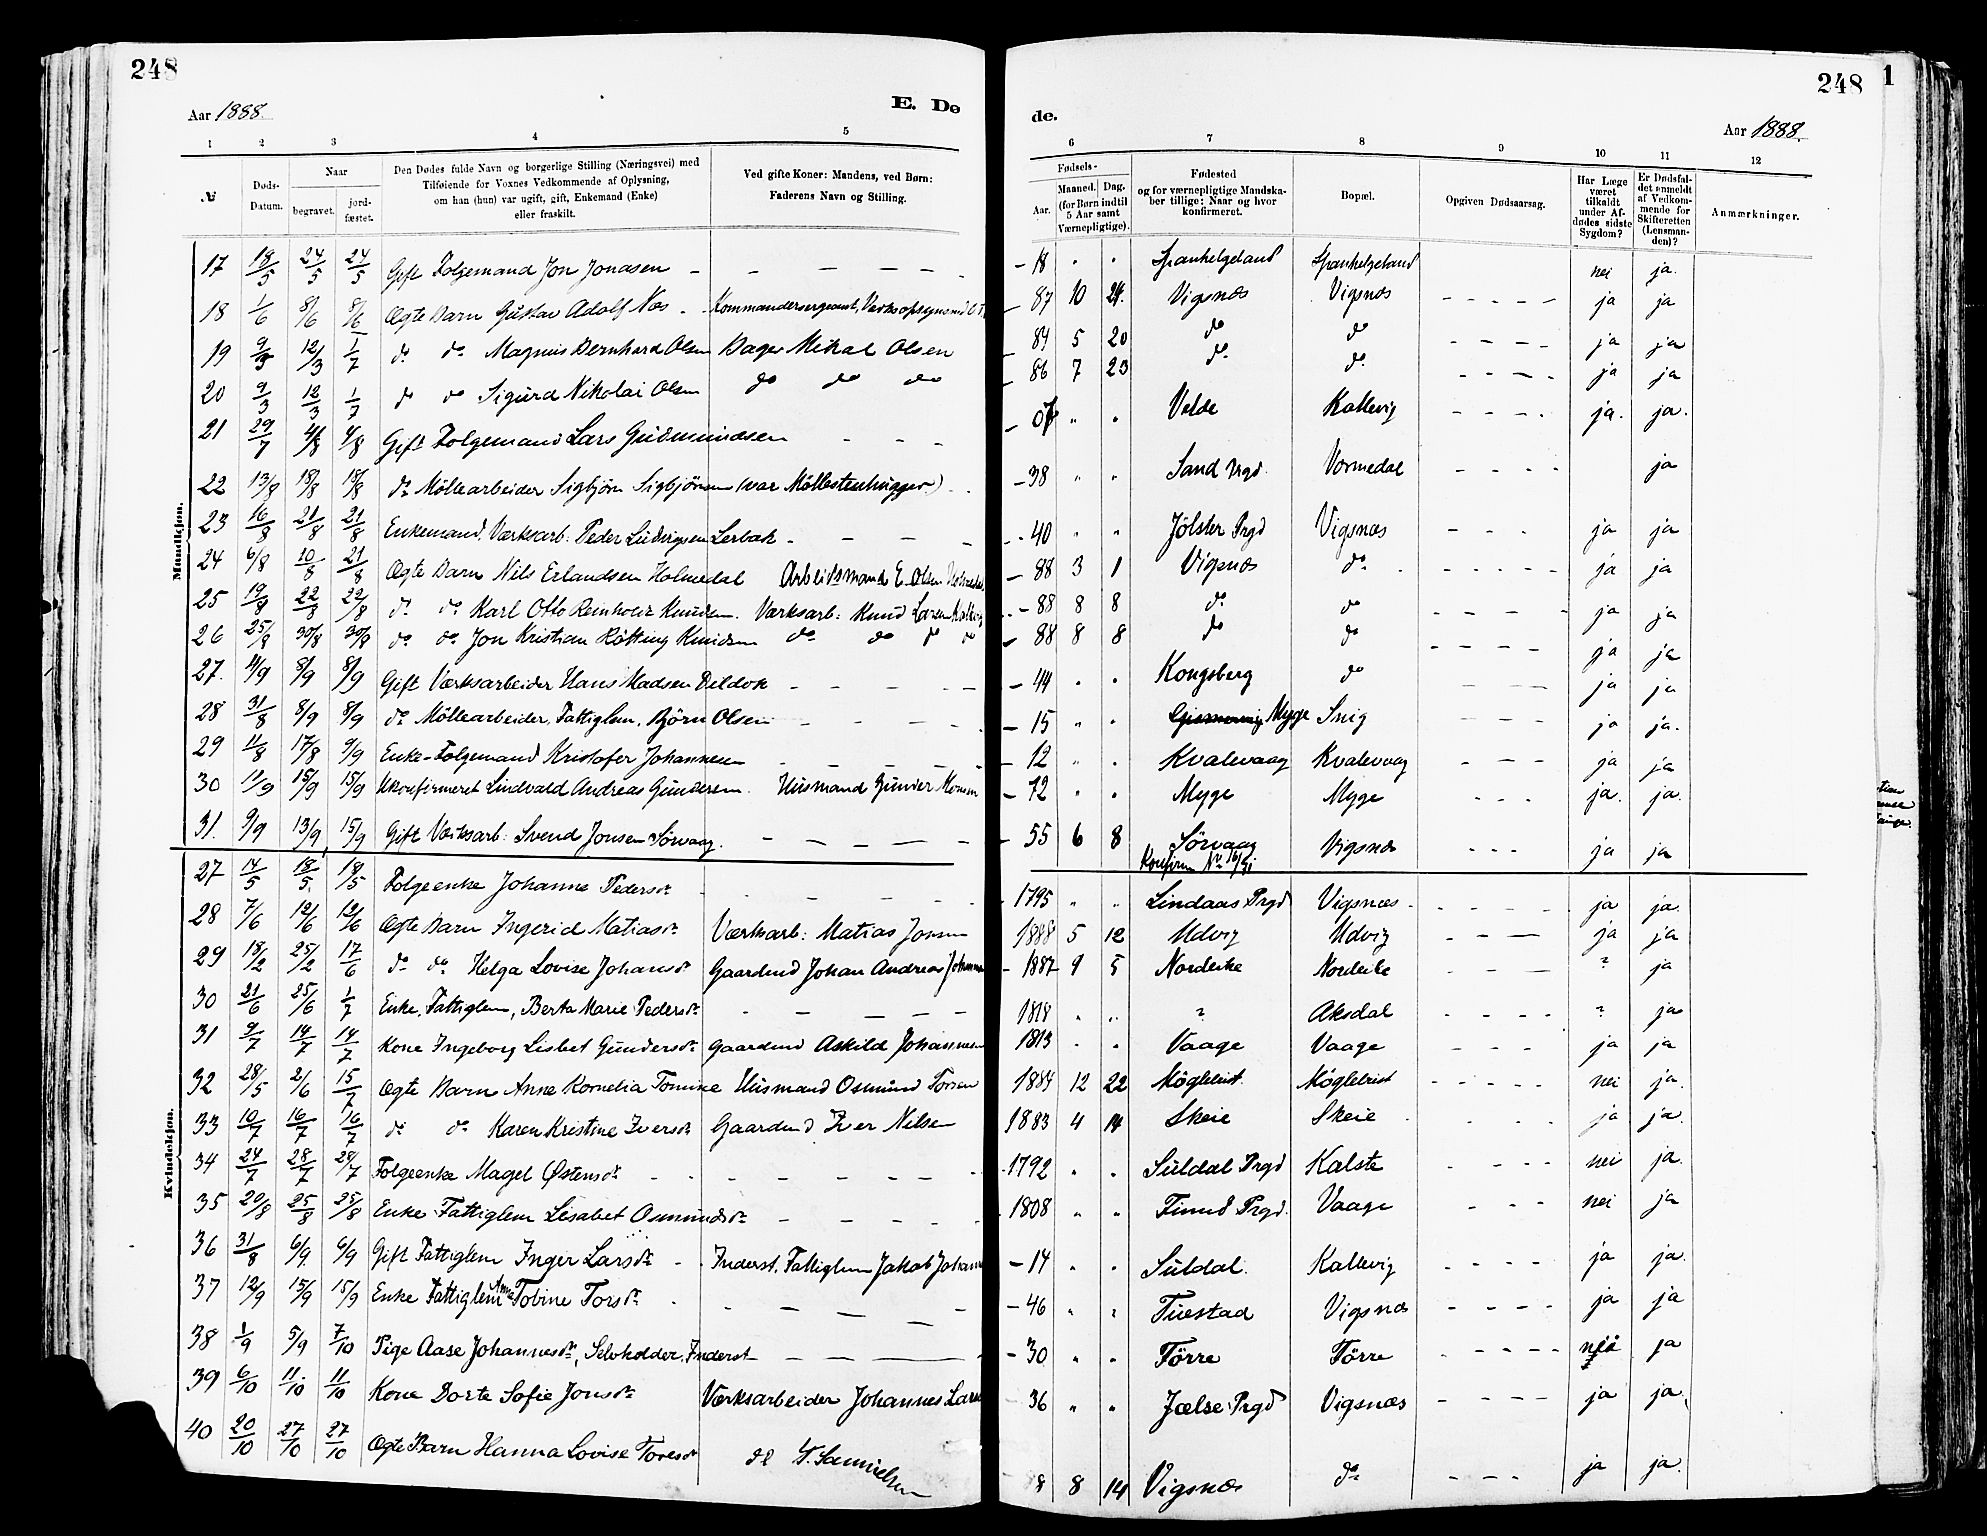 248
248
1
Aar 1888.
E. Dø
de.
Aar 1888.
1 2 3 4 5 6 7 8 9 10 11 12
№
Døds-Datum.
Naar
begravet.
jord-fæstet.
Den Dødes fulde Navn og borgerlige Stilling (Næringsvei) med
Tilføiende for Voxnes Vedkommende af Oplysning,
om han (hun) var ugift, gift, Enkemand (Enke)
eller fraskilt.
Ved gifte Koner: Mandens, ved Børn:
Faderens Navn og Stilling.
Fødsels-
Aar.
Maaned. Dag.
(for Børn indtil
5 Aar samt
Værnepligtige).
Fødested
og for værnepligtige Mandska-
ber tillige: Naar og hvor
konfirmeret.
Bopæl.
Opgiven Dødsaarsag.
Har Læge
været
tilkaldt
under Af-
dødes sidste
Sygdom?
Er Dødsfal-
det anmeldt
af Vedkom-
mende for
Skifteretten
(Lensman-
den)?
Anmærkninger.
Mandkjøn.
17 18/5 24/5 24/5 Gift Folgemand Jon Jonasen - 18 " " Spanhelgeland Spanhelgeland nei ja.
18 1/6 8/6 8/6 Ægte Barn Gustav Adolf Næs Kommandersergeant, - 87 10 24. Vigsnæs Vigsnæs ja ja
19 9/3 12/3 1/7 do do Magnus Bernhard Olsen Bager Mikal Olsen - 84 5 20 do do ja ja
20 9/3 12/3 1/7 do do Sigurd Nikolai Olsen do do do - 86 7 23 do do ja ja
21 29/7 4/8 4/8 Gift Folgemand Lars Gudmundsen - 07 " " Velde Kallevig ja. ja.
22 13/8 18/8 18/8 do Möllearbeider Sigbjörn Sigbjörnsen (var Möllestenhugger) - 38 " " Sand Prgd. Vormedal ja
23 16/8 21/8 21/8 Enkemand, Værksarb: Peder Ludvigsen Lerbak - 40 " " Jølster Prgd Vigsnæs ja ja
24 6/8 10/8 21/8 Ægte Barn Nils Erlandsen Holmedal Arbeidsmand E. Olsen Holmedal - 88 3 1 Vigsnæs do ja ja
25 19/8 22/8 22/8 do do Karl Otto Reinholdt Knudsen. Værksarb: Knud Larsen - 88 8 8 do do ja ja
26 25/8 30/8 30/8 do do Jon Kristian Knudsen do do do do - 88 8 8 do do ja ja
27. 4/9 8/9 8/9 Gift Værksarbeider Hans Madsen - 44 " " Kongsberg do ja ja
28 31/8 8/9 8/9 do Möllearbeider, Fattiglem, Björn Olsen - 15 " " Mygge Snig ja ja.
29 11/8 17/8 9/9 Enke-Folgemand Kristofer Johannesen - 12 " " Kvalevaag Kvalevaag ja ja
30 11/9 15/9 15/9 Ukonfirmeret Lindvald Andreas Gundersen. Husmand Gunder Monsen - 72 " " Myge Myge ja. ja.
31. 9/9 13/9 15/9 Gift Værksarb: Svend Jonsen Sørvaag. - 55 6 8 Sørvaag Vigsnæs ja ja
Konfirm No
Kvindekjøn.
27 14/5 18/5. 18/5 Folgeenke Johanne Pedersdr 1795 " " Lindaas Prgd Vigsnæs ja ja.
28 7/6 12/6 12/6 Ægte Barn Ingerid Matiasdr Værksarb: Matias Jonsen 1888 5 12 Udvig Udvig ja ja
29 18/2 25/2 17/6 do do Helga Lovise Johansdr Gaardmd Johan Andreas - 1887 9 5 Nordeike Nordeike ? ja
30 21/6 25/6 1/7 Enke, Fattiglem, Berta Marie Pedersdr 1818 " " ? Aksdal ? ja
31 9/7 14/7 14/7 Kone Ingeborg Lisbet Gundersdr Gaardmd Askild Johannesen 1813 " " Vaage Vaage ja ja
32 28/5 2/6 15/7 Ægte Barn Anne Kornelia Tomine Husmand Osmund Torsen 1884 12 22 Möglebust. Möglebust nei ja.
33 10/7 16/7 16/7 do do Karen Kristine Iversdr Gaardmd Iver Nilsen 1883 4 14 Skeie Skeie ja ja.
34 24/7 28/7 28/7 Folgeenke Magel Østensdr 1792 " " Suldal Prgd Kalstø nei ja.
35 20/8 25/8 25/8 Enke Fattiglem Lisabet Osmundsdr 1808 " " Prgd. Vaage nei ja
36 31/8 6/9. 6/9 Gift Fattiglem Inger Larsdr Inderst, Fattiglem Jakob - 14 " " Suldal. Kallevig ja ja.
37 12/9 15/9 15/9 Enke Fattiglem Anne Tobine Torsdr - 46 " " Tuestad Vigsnæs ja ja
38 1/9 5/9 7/10 Pige Aase Johannesdr, Selvholder, Inderst - 30 " " Förre Förre nei ja
39 6/10 11/10 11/10 Kone Dorte Sofie Jonsdr Værksarbeider Johannes - 36 " " Jælse Prgd Vigsnæs ja ja.
40 20/10 27/10 27/10 Ægte Barn Hanna Lovise Toresdr do T. Samuelsen 8 8 14 Vigsnæs do ja ja.